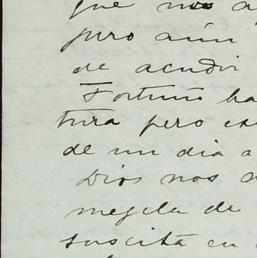 que nos a
pero aún
de acudir
Fortuño ha
tura pero es
de un dia a
Dios nos
mezcla de
suscita en